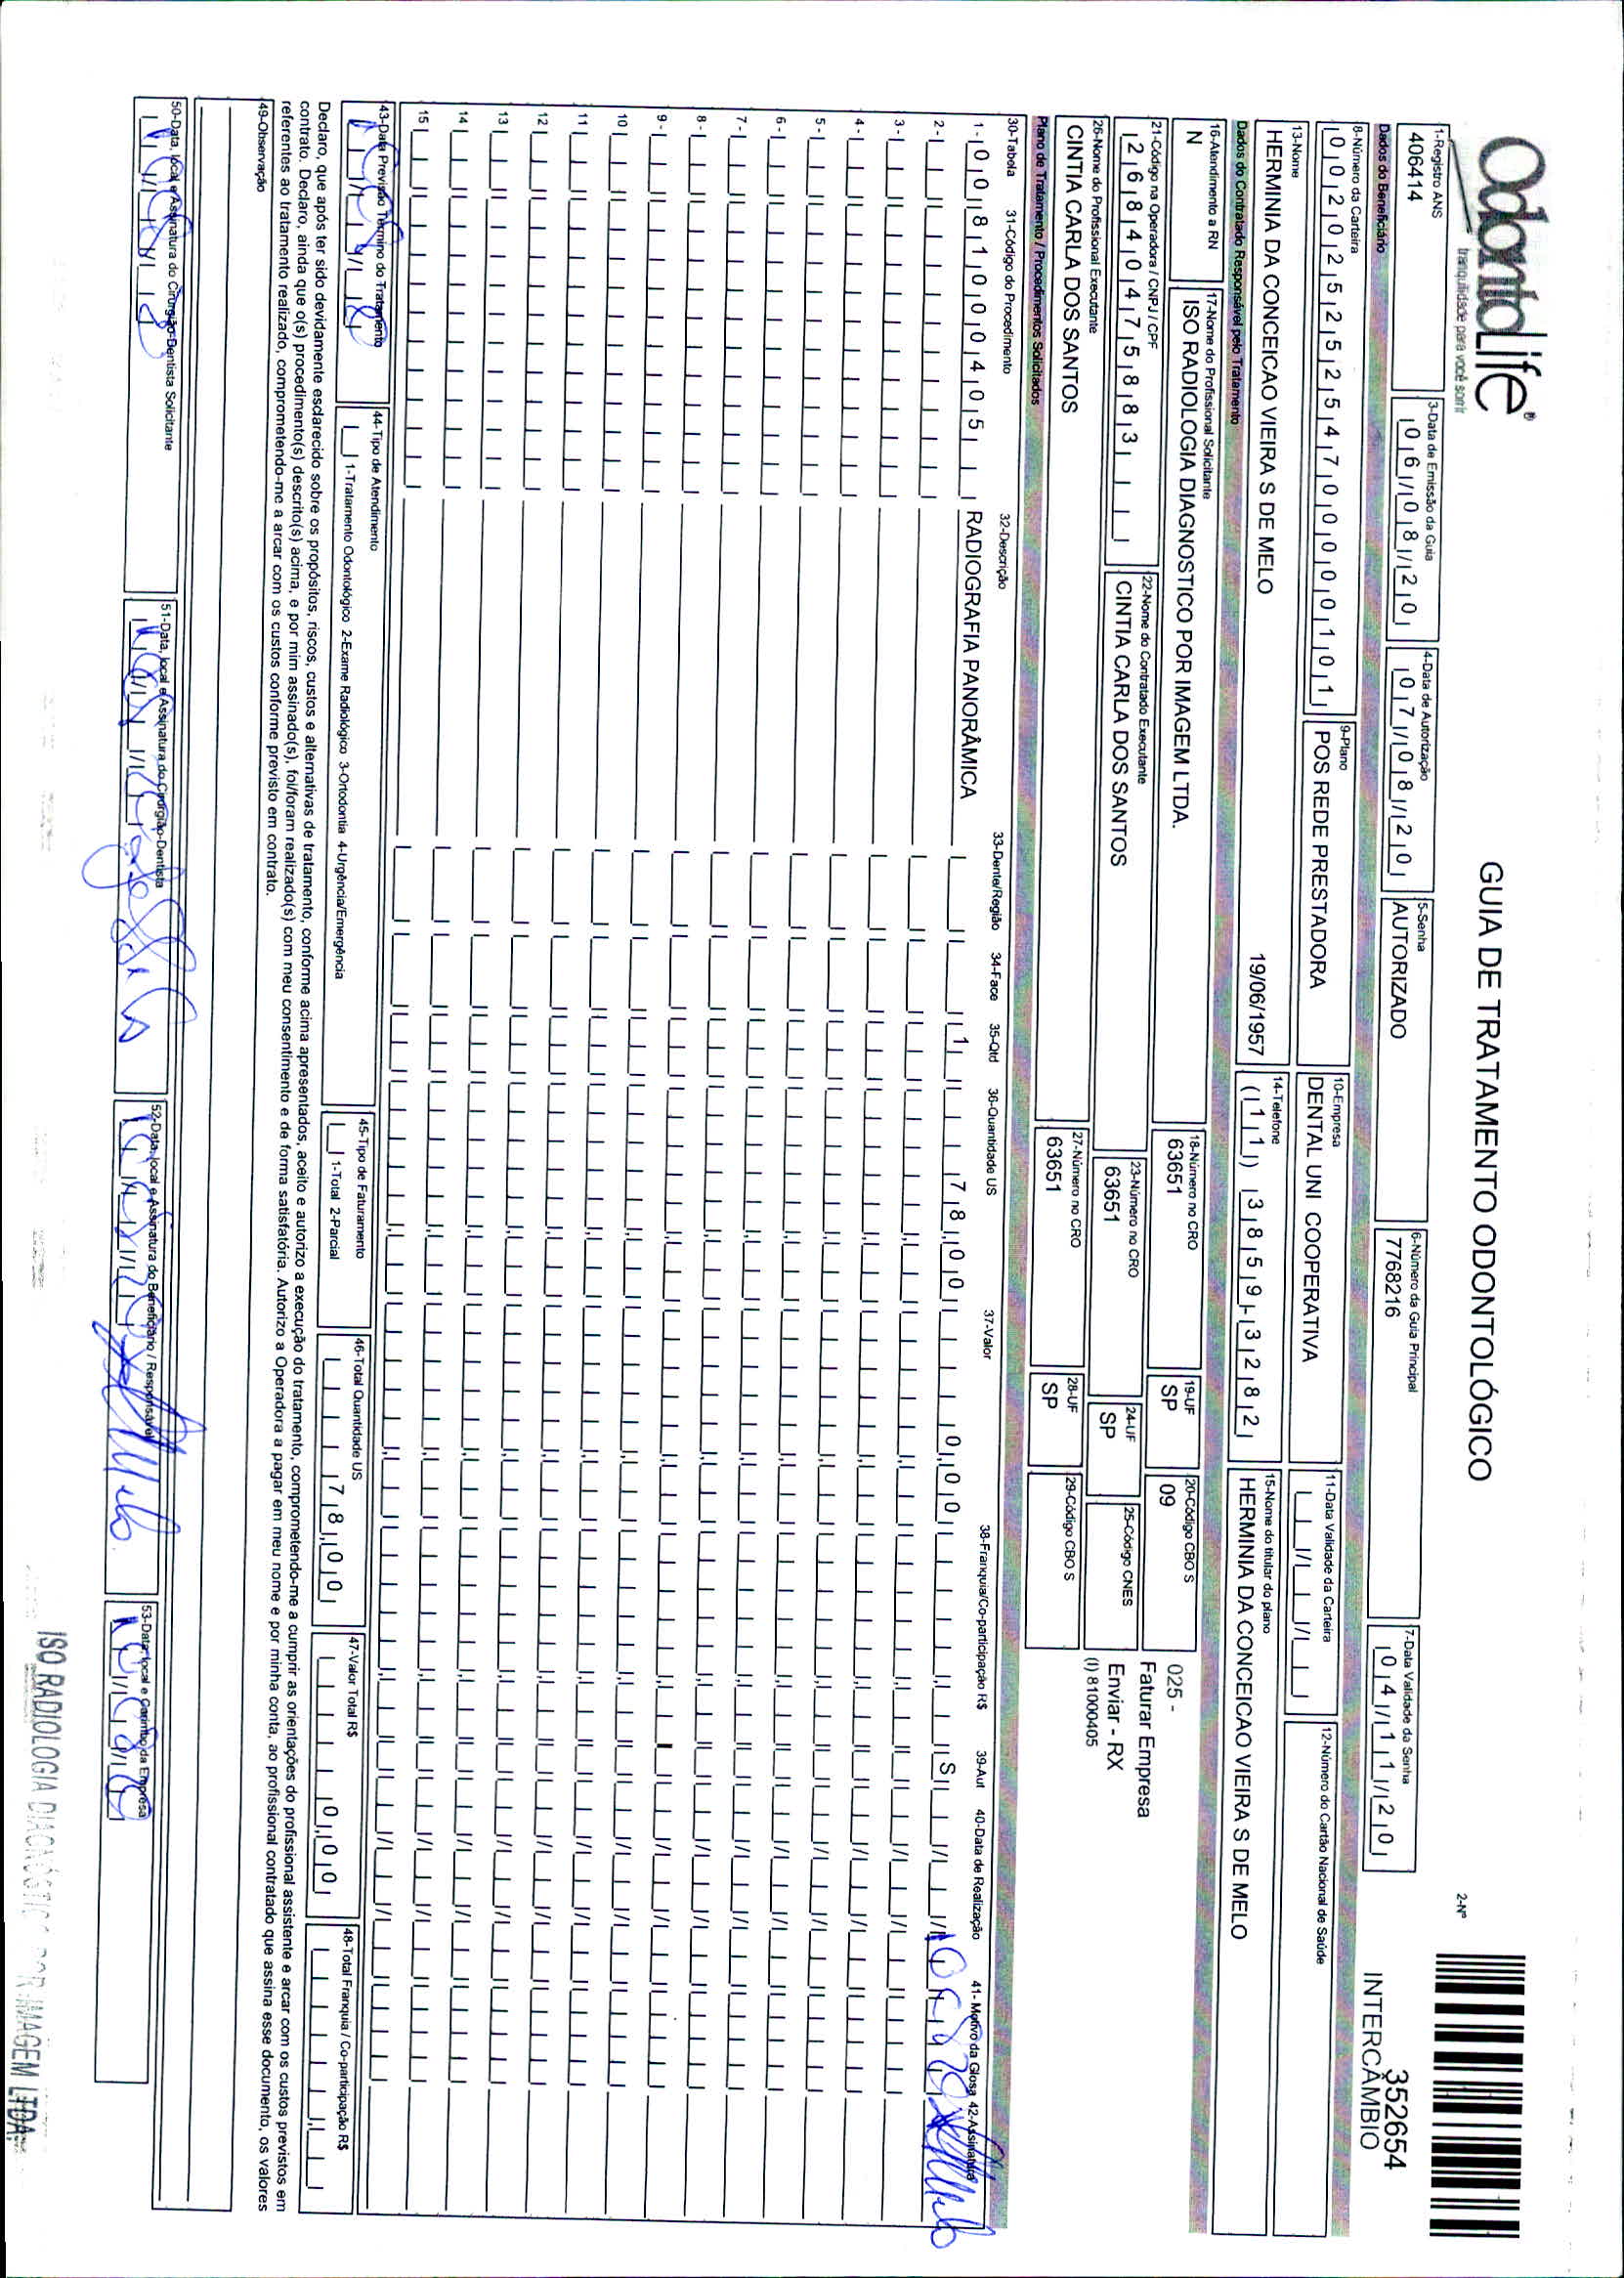 OdontoLife®
tranquilidade para você sorrir
GUIA DE TRATAMENTO ODONTOLÓGICO
2-Nº
352654
INTERCÂMBIO
1-Registro ANS
406414
3-Data de Emissão da Guia
06/08/20
4-Data de Autorização
07/08/20
5-Senha
AUTORIZADO
6-Número da Guia Principal
7768216
7-Data Validade da Senha
04/11/20
Dados do Beneficiário
8-Número da Carteira
00202525254700000101
9-Plano
POS REDE PRESTADORA
10-Empresa
DENTAL UNI COOPERATIVA
11-Data Validade da Carteira
12-Número do Cartão Nacional de Saúde
13-Nome
HERMINIA DA CONCEICAO VIEIRA S DE MELO
19/06/1957
14-Telefone
(11) 38559-3282
15-Nome do titular do plano
HERMINIA DA CONCEICAO VIEIRA S DE MELO
Dados do Contratado Responsável pelo Tratamento
16-Atendimento a RN
N
17-Nome do Profissional Solicitante
ISO RADIOLOGIA DIAGNOSTICO POR IMAGEM LTDA.
18-Número no CRO
63651
19-UF
SP
20-Código CBO S
09
025 -
Faturar Empresa
Enviar - RX
(I) 81000405
21-Código na Operadora / CNPJ / CPF
26840475883
22-Nome do Contratado Executante
CINTIA CARLA DOS SANTOS
23-Número no CRO
63651
24-UF
SP
25-Código CNES
26-Nome do Profissional Executante
CINTIA CARLA DOS SANTOS
27-Número no CRO
63651
28-UF
SP
29-Código CBO S
Plano de Tratamento / Procedimentos Solicitados
30-Tabela 31-Código do Procedimento 32-Descrição 33-Dente/Região 34-Face 35-Qtd 36-Quantidade US 37-Valor 38-Franquia/Co-participação R$ 39-Aut 40-Data de Realização 41-Motivo da Glosa 42-Assinatura
1 - 00 81000405 RADIOGRAFIA PANORÂMICA 1 78,00 0,00 S
2 -
3 -
4 -
5 -
6 -
7 -
8 -
9 -
10
11
12
13
14
15
43-Data Previsão Término do Tratamento
44-Tipo de Atendimento
1-Tratamento Odontológico 2-Exame Radiológico 3-Ortodontia 4-Urgência/Emergência
45-Tipo de Faturamento
1-Total 2-Parcial
46-Total Quantidade US
78,00
47-Valor Total R$
0,00
48-Total Franquia / Co-participação R$
Declaro, que após ter sido devidamente esclarecido sobre os propósitos, riscos, custos e alternativas de tratamento, conforme acima apresentados, aceito e autorizo a execução do tratamento, comprometendo-me a cumprir as orientações do profissional assistente e arcar com os custos previstos em
contrato. Declaro, ainda que o(s) procedimento(s) descrito(s) acima, e por mim assinado(s), foi/foram realizado(s) com meu consentimento e de forma satisfatória. Autorizo a Operadora a pagar em meu nome e por minha conta, ao profissional contratado que assina esse documento, os valores
referentes ao tratamento realizado, comprometendo-me a arcar com os custos conforme previsto em contrato.
49-Observação
50-Data, local e Assinatura do Cirurgião-Dentista Solicitante
51-Data, local e Assinatura do Cirurgião-Dentista
52-Data, local e Assinatura do Beneficiário / Responsável
53-Data, local e Carimbo da Empresa
ISO RADIOLOGIA DIAGNÓSTICO POR IMAGEM LTDA.